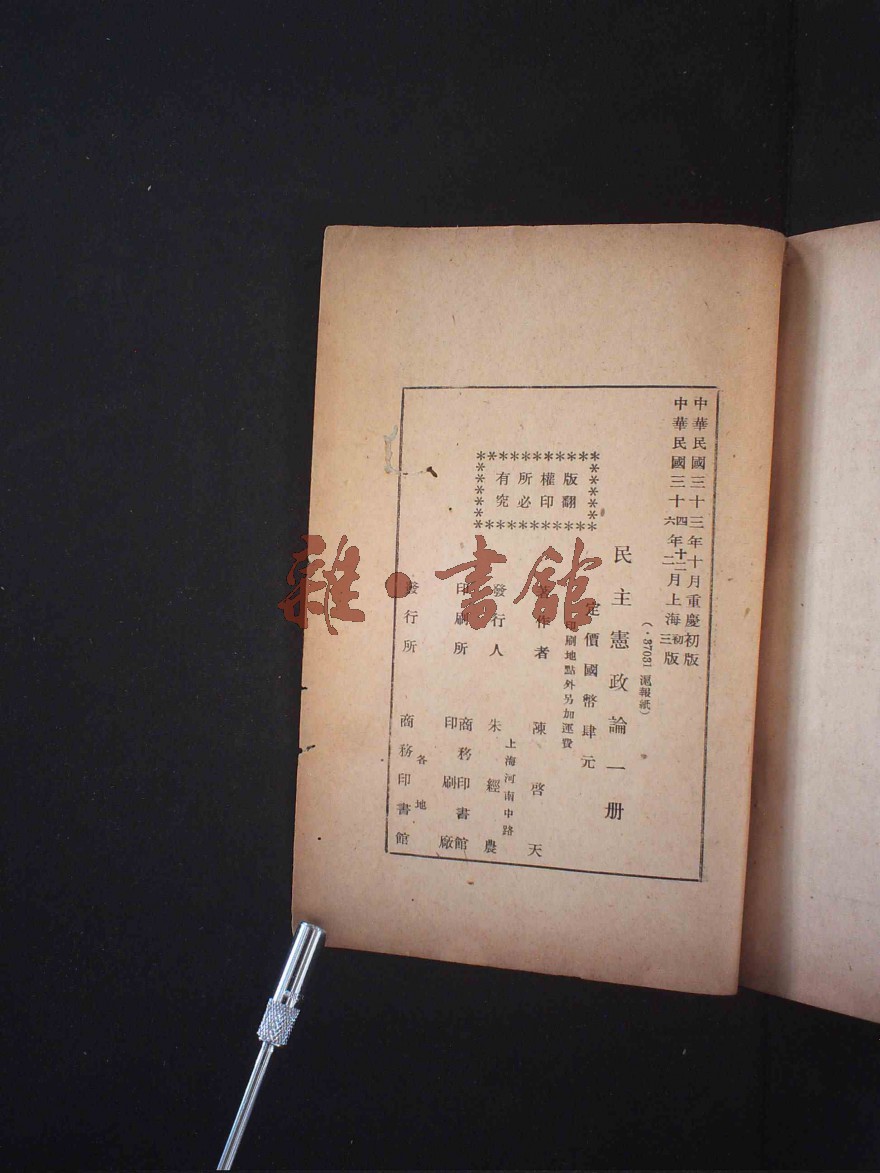 中華民國三十三年十月重慶初版
中華民國三十四年十二月上海初版
六 二 三
(·37031 滬報紙)
民主憲政論一册
定價國幣肆元
印刷地點外另加運費
版權所有
翻印必究
著作者 陳啓天
上海河南中路
發行人 朱經農
印刷所 商務印書館
印刷廠
各地
發行所 商務印書館
雜·書館